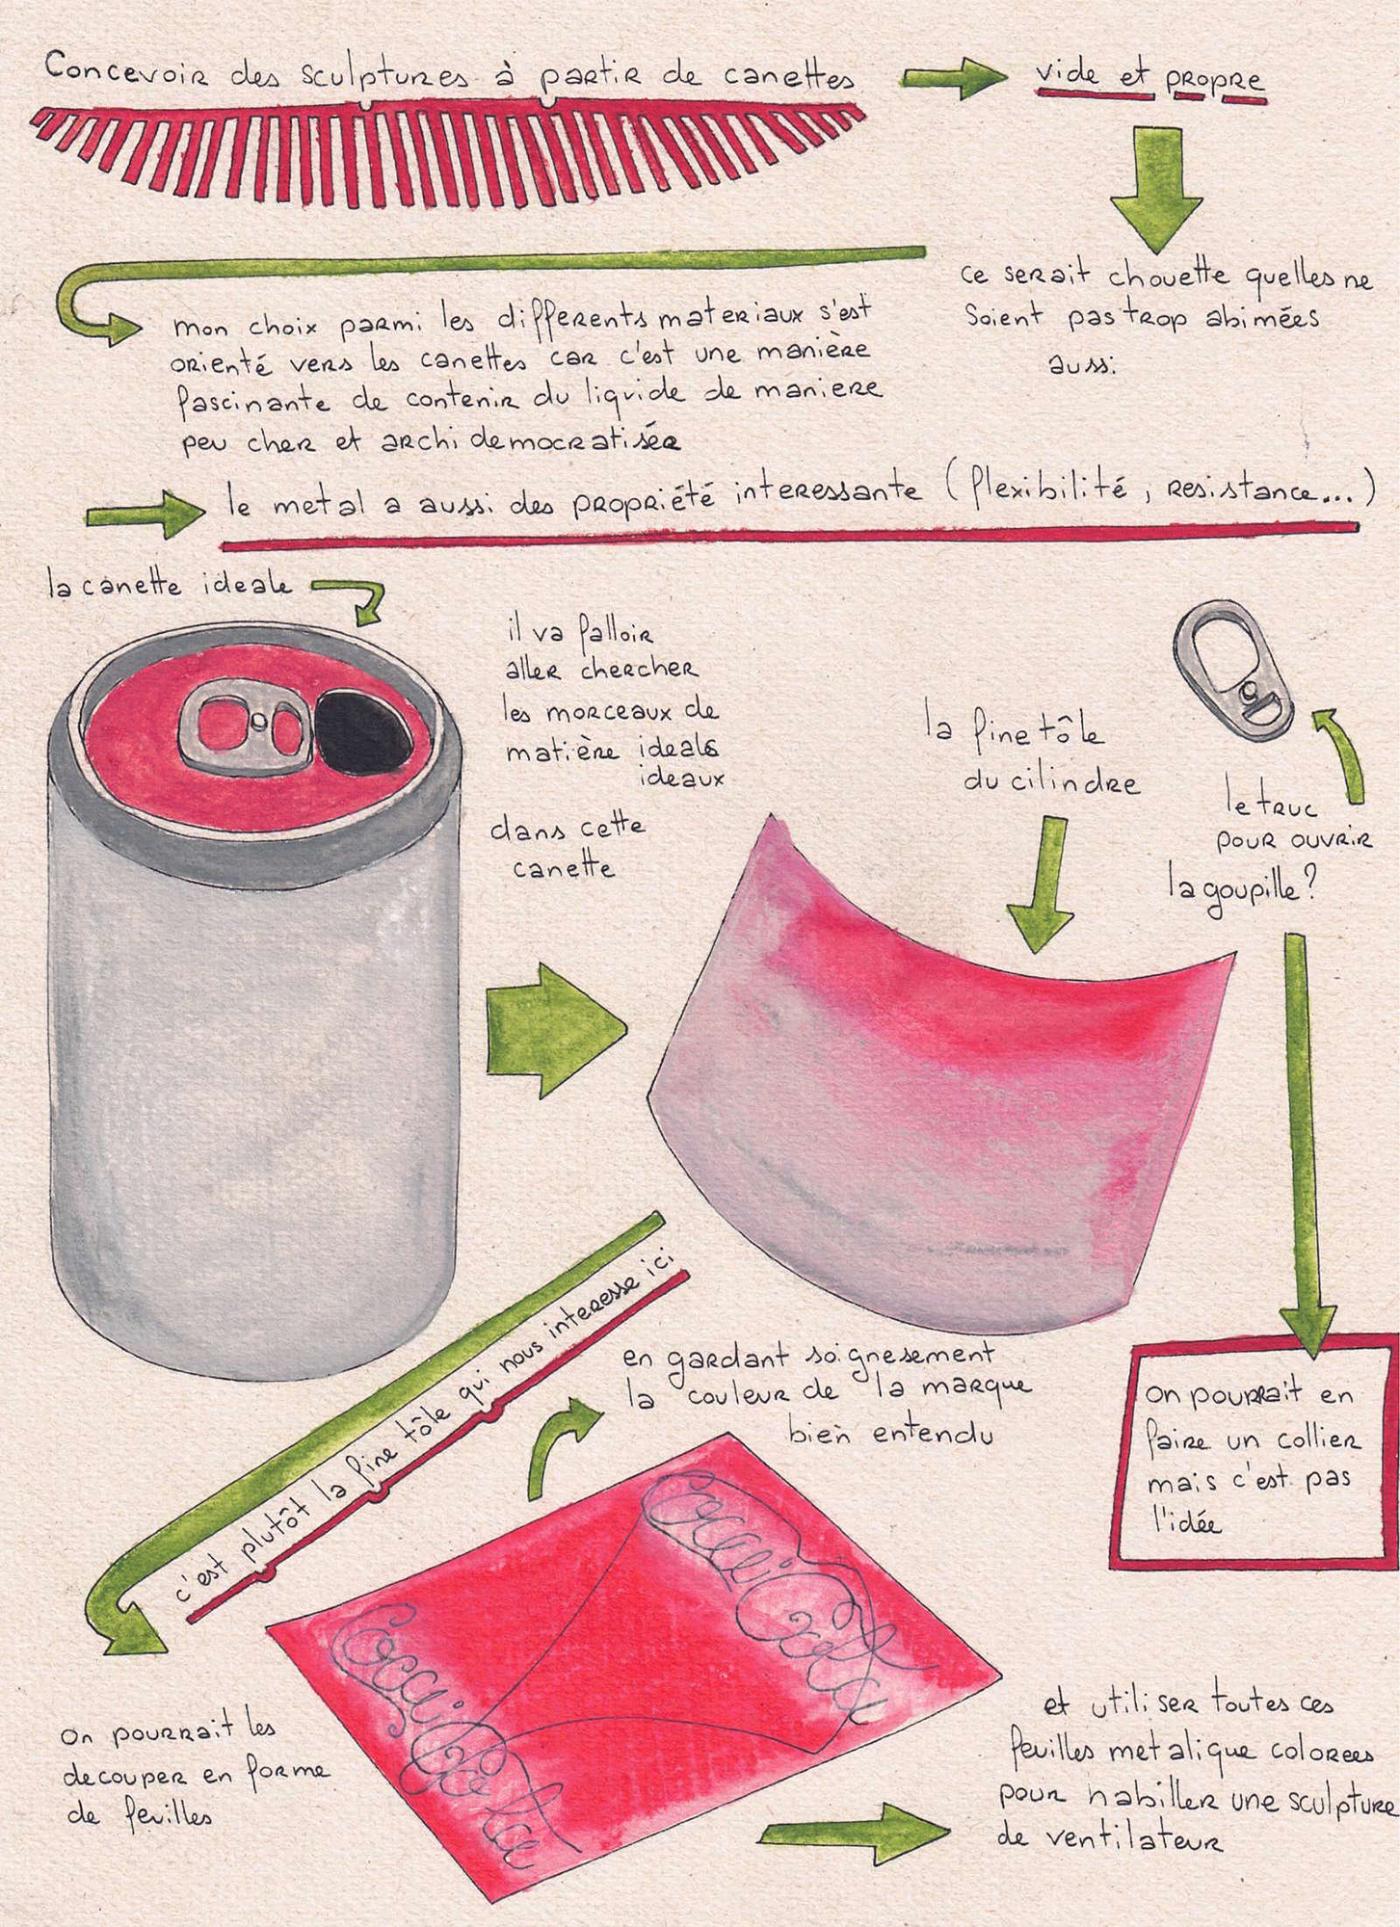 Concevoir des sculptures à partir de canettes
vide et propre
ce serait chouette quelles ne
soient pas trop abimées
aussi
mon choix parmi les differents materiaux s'est
orienté vers les canettes car c'est une manière
fascinante de contenir du liquide de maniere
peu cher et archi democratisée
le metal a aussi des propriété interessante (flexibilité, resistance...)
la canette ideale
il va falloir
aller chercher
les morceaux de
matière ideals
ideaux
dans cette
canette
la fine tôle
du cilindre
le truc
pour ouvrir
la goupille?
on pourrait en
faire un collier
mais c'est pas
l'idée
c'est plutôt la fine tôle qui nous interesse ici
en gardant soignesement
la couleur de la marque
bien entendu
On pourrait les
decouper en forme
de feuilles
et utiliser toutes ces
feuilles metalique colorees
pour habiller une sculpture
de ventilateur